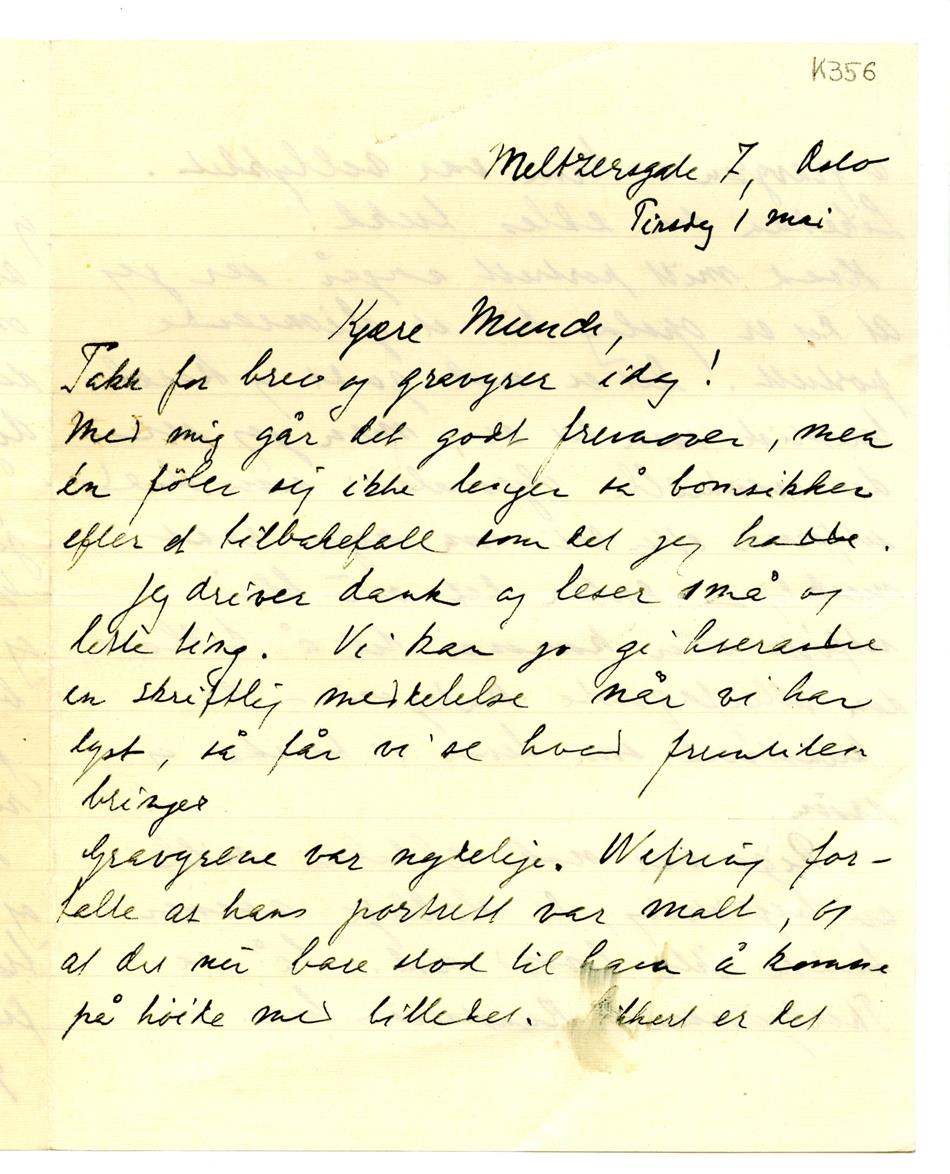 K356
Meltzersgate 7, Oslo
Tirsdag 1 mai
Kjære Munch,
Takk for brev og gravyrer idag!
Med mig går det godt fremover, men
én föler sig ikke lenger så bomsikker
efter et tilbakefall som det jeg hadde.
Jeg driver dank og leser små og
lette ting. Vi kan jo gi hverandre
en skriftlig meddelelse når vi har
lyst, så får vi se hvad fremtiden
bringer
Gravyrene var nydelige. Wefring for-
talte at hans portrett var malt, og
at det nu bare stod til ham å komme
på höide med billedet. Sikkert er det